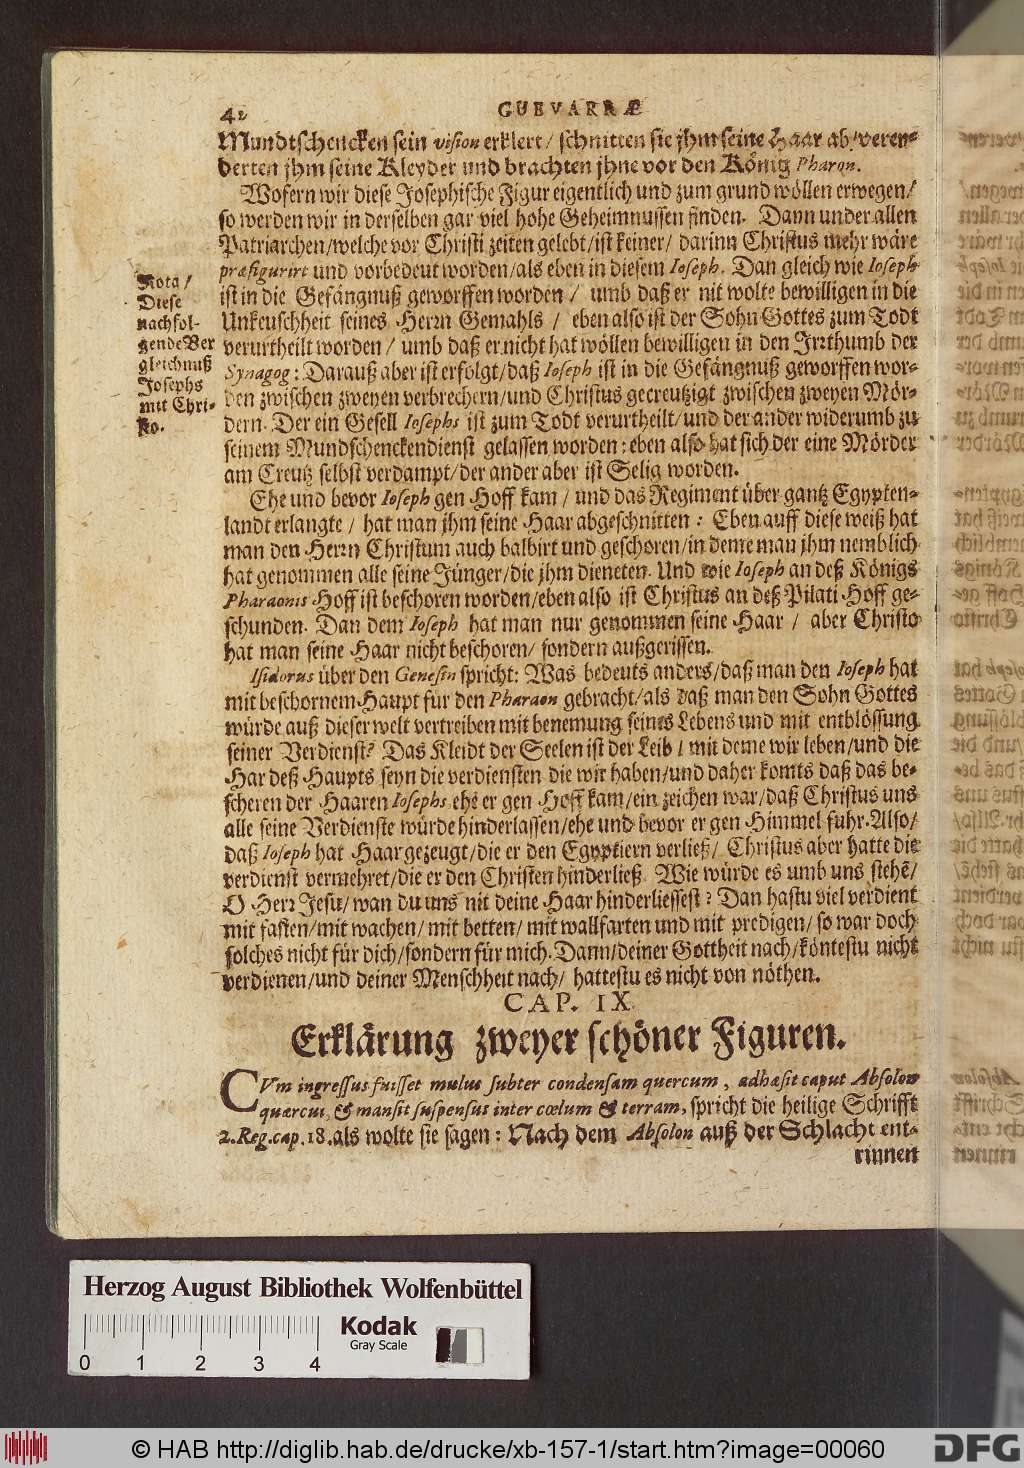 42
GUEVARRÆ
Mundtschencken sein vision erklert/ schnitten sie jhm seine Haar ab/ veren-
derten jhm seine Kleyder und brachten jhne vor den König Pharon.
Wofern wir diese Josephische Figur eigentlich und zum grund wöllen erwegen/
so werden wir in derselben gar viel hohe Geheimnussen finden. Dann under allen
Patriarchen/welche vor Christi zeiten gelebt/ist keiner/ darinn Christus mehr wäre
præfigurirt und vorbedeut worden/als eben in diesem Ioseph. Dan gleich wie Ioseph
ist in die Gefängnuß geworffen worden/ umb daß er nit wolte bewilligen in die
Unkeuschheit seines Herrn Gemahls/ eben also ist der Sohn Gottes zum Todt
verurtheilt worden/ umb daß er nicht hat wöllen bewilligen in den Irrthumb der
Synagog: Darauß aber ist erfolgt/daß Ioseph ist in die Gefängnuß geworffen wor-
den zwischen zweyen verbrechern/und Christus gecreutzigt zwischen zweyen Mör-
dern. Der ein Gesell Iosephs ist zum Todt verurtheilt/und der ander widerumb zu
seinem Mundschenckendienst gelassen worden: eben also hat sich der eine Mörder
am Creutz selbst verdampt/der ander aber ist Selig worden.
Nota/
Diese
nachfol-
gende Ver
gleichnuß
Josephs
mit Chri-
sto.
Ehe und bevor Ioseph gen Hoff kam/ und das Regiment über gantz Egypten-
landt erlangte/ hat man jhm seine Haar abgeschnitten: Eben auff diese weiß hat
man den Herrn Christum auch balbirt und geschoren/in deme man jhm nemblich
hat genommen alle seine Jünger/die jhm dieneten. Und wie Ioseph an deß Königs
Pharaonis Hoff ist beschoren worden/eben also ist Christus an deß Pilati Hoff ge-
schunden. Dan dem Ioseph hat man nur genommen seine Haar/ aber Christo
hat man seine Haar nicht beschoren/ sondern außgerissen.
Isidorus über den Genesin spricht: Was bedeuts anders/daß man den Ioseph hat
mit beschornem Haupt für den Pharaon gebracht/als daß man den Sohn Gottes
würde auß dieser welt vertreiben mit benemung seines Lebens und mit entblössung
seiner Verdienst? Das Kleidt der Seelen ist der Leib/ mit deme wir leben/und die
Har deß Haupts seyn die verdiensten die wir haben/und daher komts daß das be-
scheren der Haaren Iosephs ehe er gen Hoff kam/ein zeichen war/daß Christus uns
alle seine Verdienste würde hinderlassen/ehe und bevor er gen Himmel fuhr. Also/
daß Ioseph hat Haar gezeugt/die er den Egyptiern verließ/ Christus aber hatte die
verdienst vermehret/die er den Christen hinderließ. Wie würde es umb uns stehē/
O Herr Jesu/wan du uns nit deine Haar hinderliessest? Dan hastu viel verdient
mit fasten/mit wachen/mit betten/mit wallfarten und mit predigen/so war doch
solches nicht für dich/sondern für mich. Dann/deiner Gottheit nach/köntestu nicht
verdienen/und deiner Menschheit nach/ hattestu es nicht von nöthen.
CAP. IX
Erklärung zweyer schöner Figuren.
CVm ingressus fuisset mulus subter condensam quercum, adhæsit caput Absolon
quercui, & mansit suspensus inter cœlum & terram, spricht die heilige Schrifft
2. Reg. cap. 18. als wolte sie sagen: Nach dem Absolon auß der Schlacht ent-
rinnen
Herzog August Bibliothek Wolfenbüttel
0 1 2 3 4
Kodak
Gray Scale
© HAB http://diglib.hab.de/drucke/xb-157-1/start.htm?image=00060
DFG